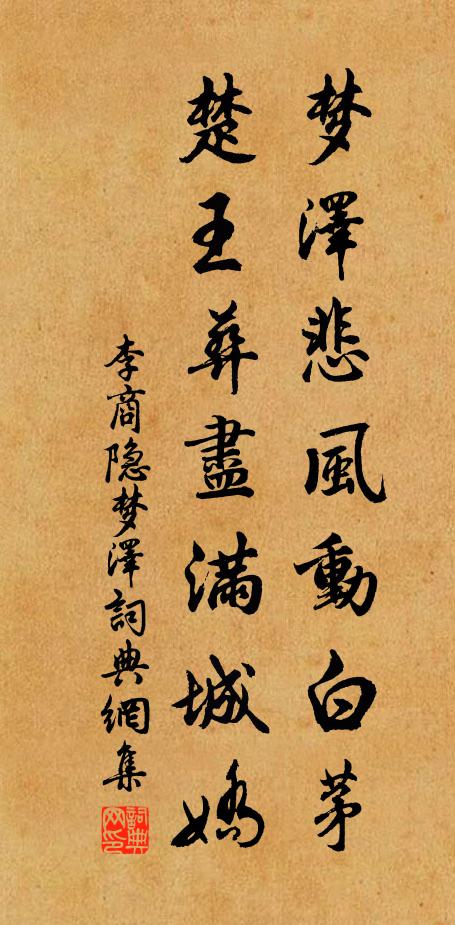 梦澤悲風動白茅
楚王葬盡满城嬌
李商隐梦澤詞典網集
詞典网印